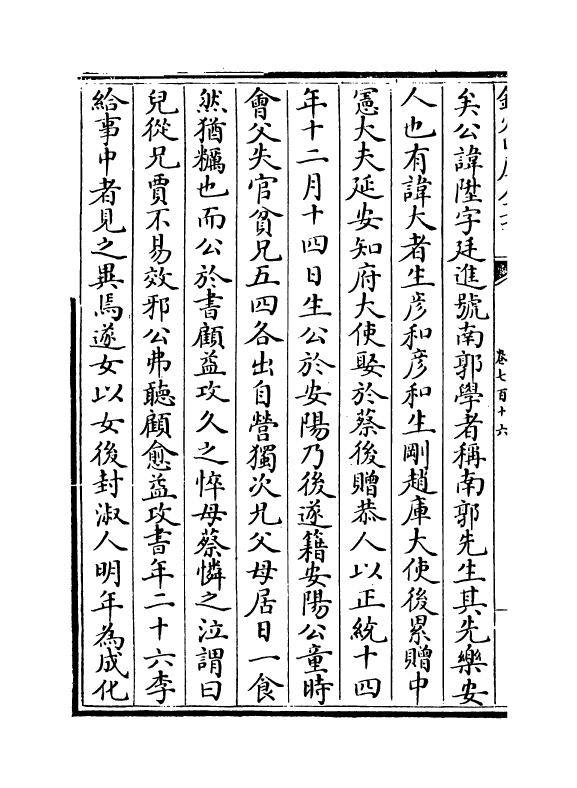 欽定四庫全書
卷七百十六
矣公諱陞字廷進號南郭學者稱南郭先生其先樂安
人也有諱大者生彦和彦和生剛趙庫大使後累贈中
憲大夫延安知府大使娶於蔡後贈恭人以正統十四
年十二月十四日生公於安陽乃後遂籍安陽公童時
會父失官貧兄五四各出自營獨次兄父母居日一食
然猶糲也而公於書顧益攻久之悴母蔡憐之泣謂曰
兒從兄賈不易效邪公弗聽顧愈益攻書年二十六李
給事中者見之異焉遂女以女後封淑人明年為成化